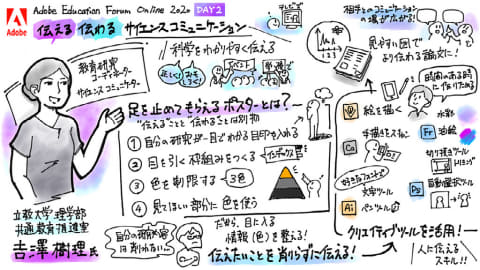 Adobe
Adobe Education Forum Online 2020 DAY2
伝える 伝わる サイエンスコミュニケーション
科学をわかりやすく伝える
教育研究
コーディネーター
サイエンスコミュニケーター
正しく!
イベント
足を止めてもらえるポスターとは?
"伝えることと伝わることは別物"
① 自分の研究が一目でわかる目印を入れる
② 目を引く枠組みをつくる
③ 色を制限する
3色
④ 見てほしい部分に色を使う
立教大学理学部
共通教育推進室
吉澤樹理氏
自分の研究内容は削れない…
だから、目に入る
情報(色)を整える!
伝えたいことを削らずに伝える!
相手とのコミュニケーションの場が広がる!
見やすい図で
より伝わる論文に!
時間のある時に作りためる
絵を描く
水彩
Fr 油絵
Ca 手描きをスキャン
切り抜きツール
トリミング
好きなフォントで
文字ツール
Ps
自動選択ツール
Ai ペンツール
クリエイティブツールを活用!
人に伝えるスキル!!